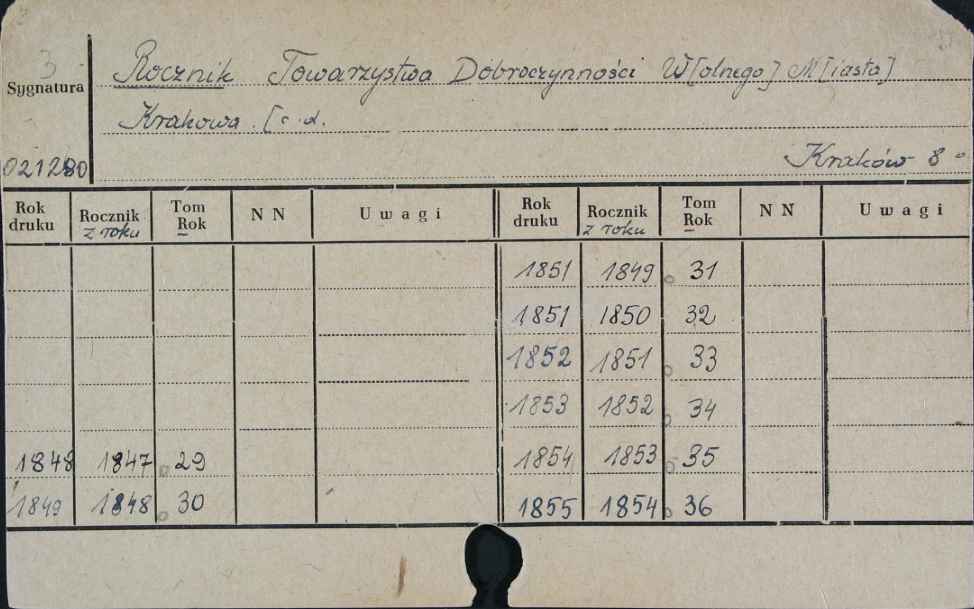 3
Sygnatura
Rocznik Towarzystwa Dobroczynności W[olnego] M[iasta]
Krakowa. [c.d.
021280
Kraków 8°
Rok druku Rocznik z roku Tom Rok N N Uwagi Rok druku Rocznik z roku Tom Rok N N Uwagi
1851 1849 31
1851 1850 32
1852 1851 33
1853 1852 34
1848 1847 29 1854 1853 35
1849 1848 30 1855 1854 36